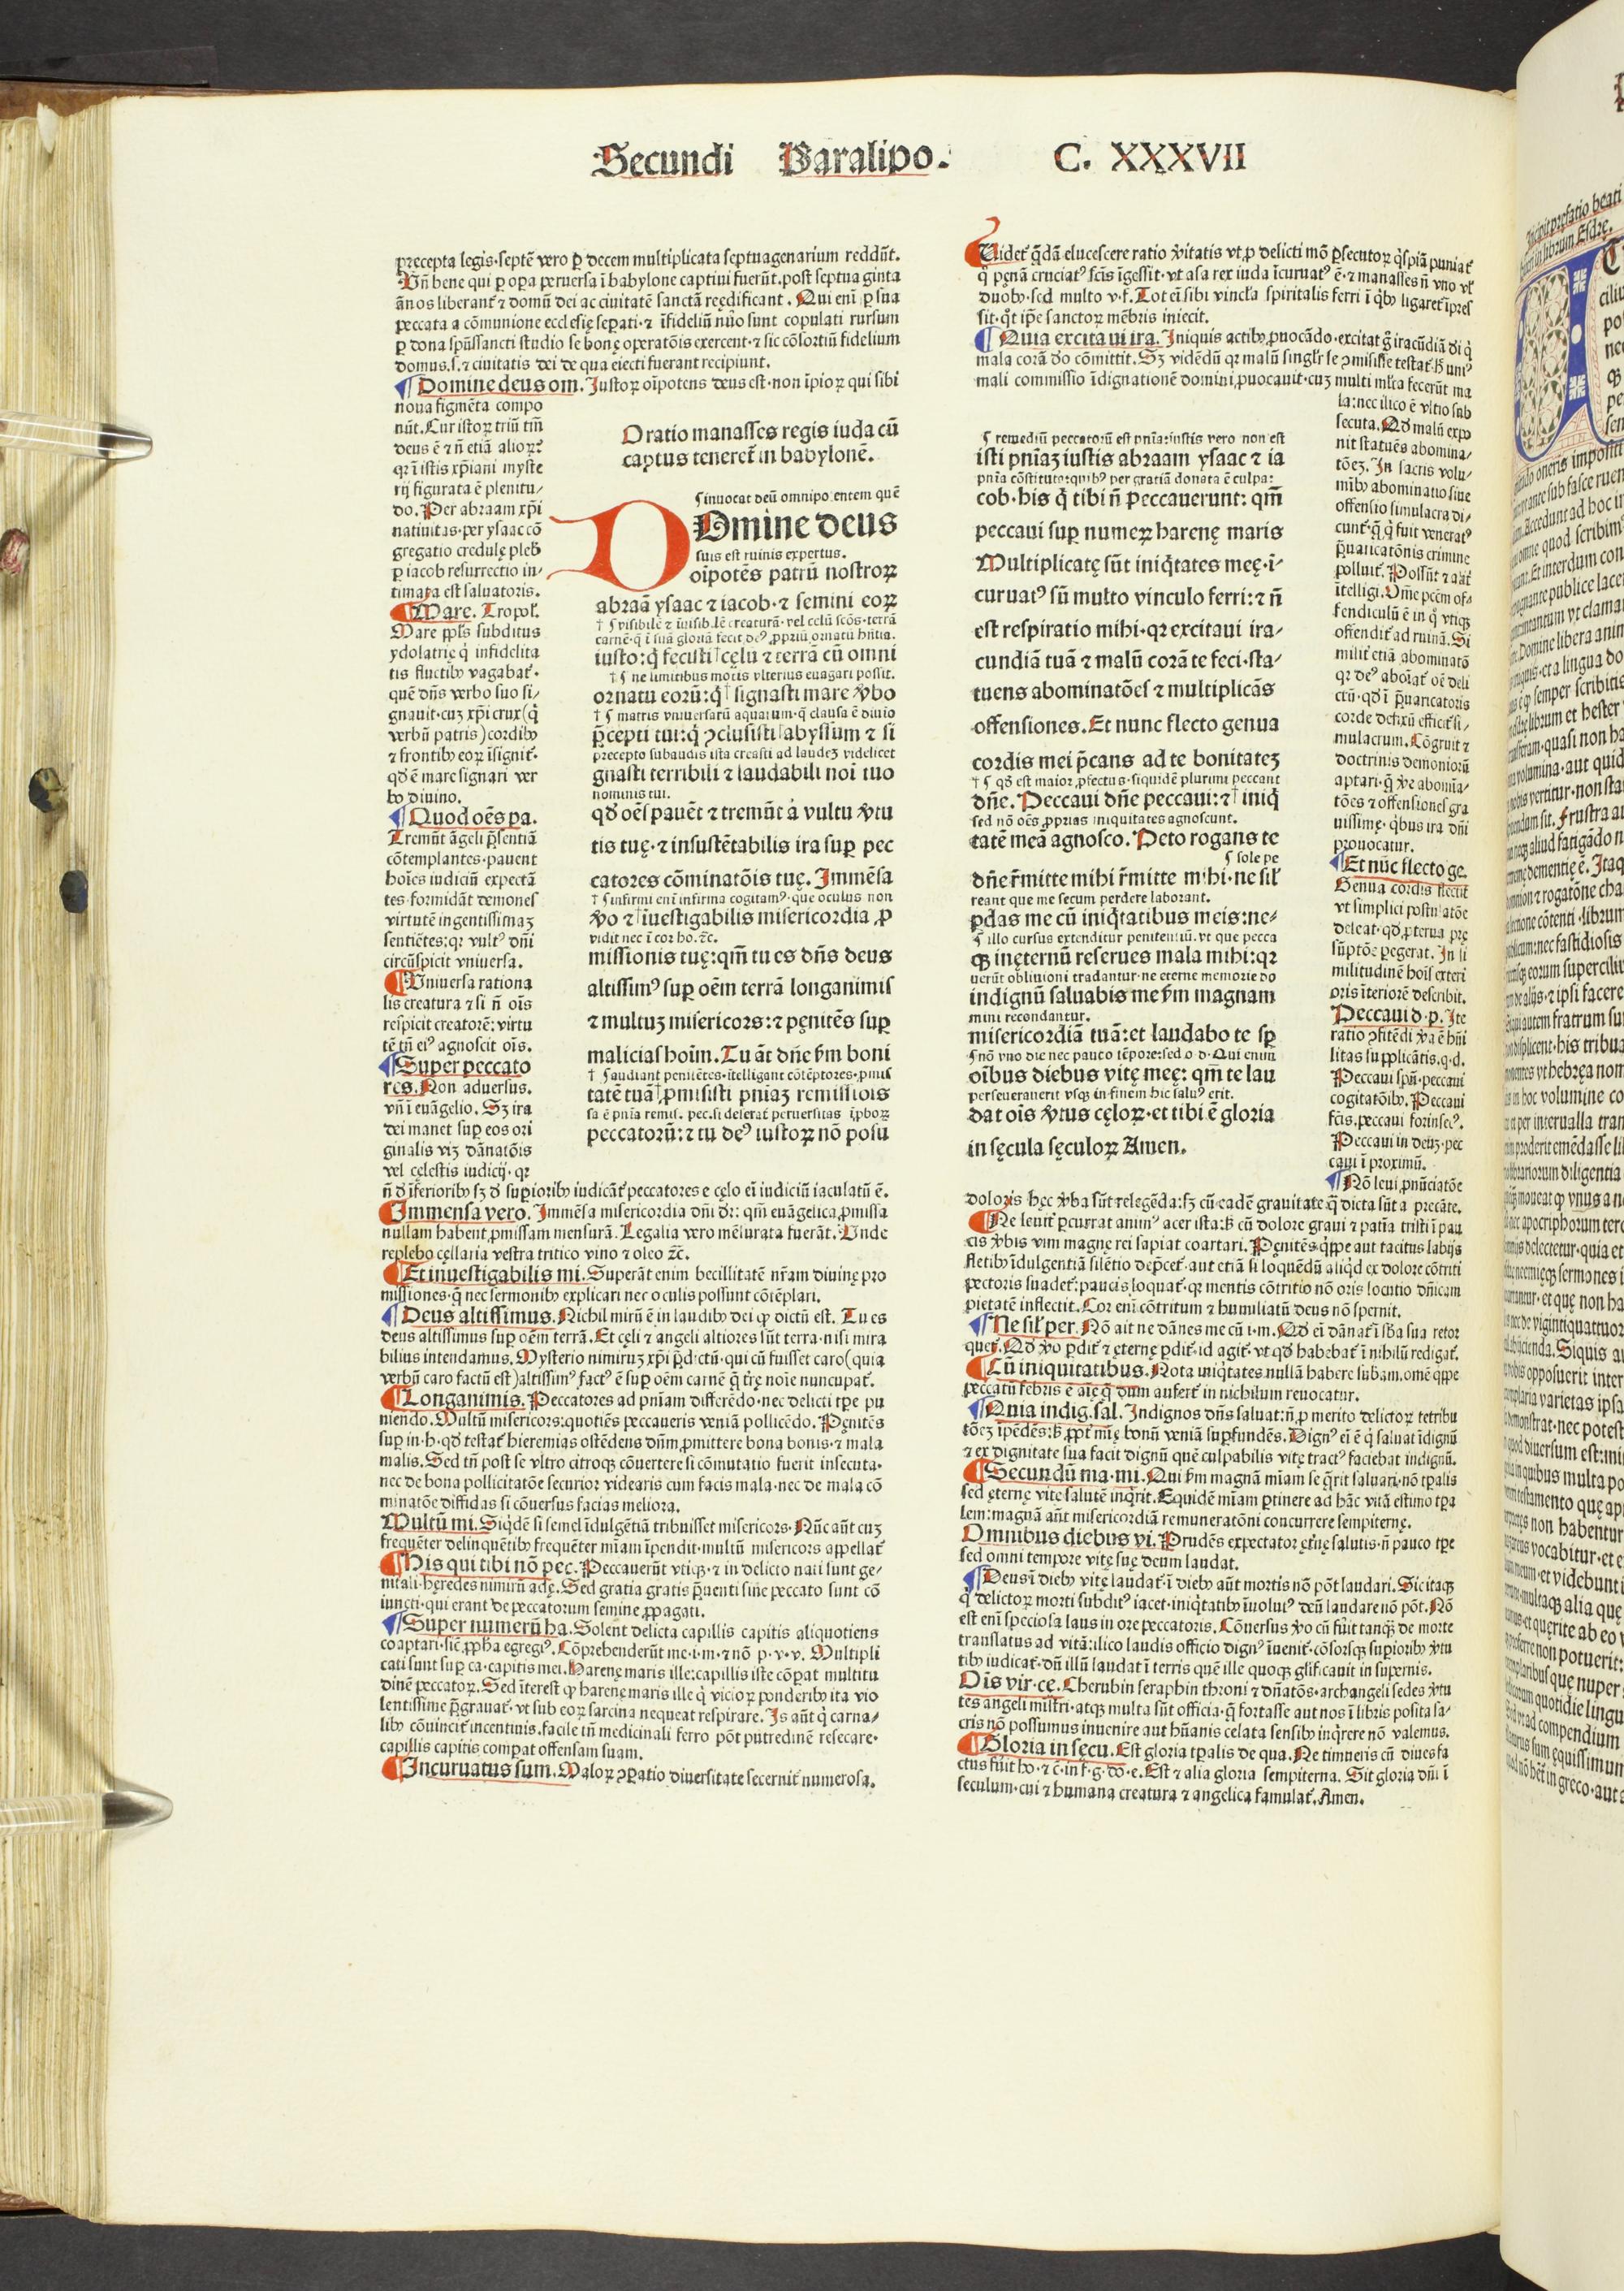 Secundi Paralipo. C. XXXVII
precepta legis·septē vero ꝑ decem multiplicata septuagenarium reddūt.
Vñ bene qui ꝑ opa peruersa ī babylone captiui fuerūt·post septua ginta
ānos liberant᷑ ⁊ domū dei ac ciuitatē sanctā reędificant. Qui enī ꝓ sua
peccata a cōmunione ecclesię sepati·⁊ īfideliū nūo sunt copulati rursum
ꝑ dona spūssancti studio se bonę operatōis exercent·⁊ sic cōsortiū fidelium
domus.s.⁊ ciuitatis dei de qua eiecti fuerant recipiunt.
Domine deus om. Iustoꝝ oīpotens deus est·non īpioꝝ qui sibi
noua figmēta compo
nūt. Cur istoꝝ triū tm̄
deus ē ⁊ n̄ etiā alioꝝ?
qꝛ ī istis xp̄iani myste
rij figurata ē plenitu/
do. Per abraam xp̄i
natiuitas·per ysaac cō
gregatio credulę pleb̄
ꝑ iacob resurrectio in/
timata est saluatoris.
Mare. Tropol᷑.
Mare ppl̄s subditus
ydolatrię q̄ infidelita
tis fluctibꝰ vagabat᷑·
quē dn̄s verbo suo si/
gnauit·cuꝫ xp̄i crux (q̄
verbū patris) cordibꝰ
⁊ frontibꝰ eoꝝ īsignit᷑·
qd̄ ē mare signari ver
bo diuino.
Quod oēs pa.
Tremūt āgeli p̄sentiā
cōtemplantes·pauent
hoīes iudiciū expectā
tes·formidāt demones
virtutē ingentissimaꝫ
sentiētes:qꝛ vultꝰ dn̄i
circūspicit vniuersa.
Vniuersa rationa
lis creatura ⁊ si n̄ oīs
respicit creatorē: virtu
tē tn̄ eiꝰ agnoscit oīs.
Super peccato
res. Non aduersus.
vn̄ ī euāgelio. Sꝫ ira
dei manet suꝑ eos ori
ginalis viꝫ dānatōis
vel cęlestis iudicij·qꝛ
Oratio manasses regis iuda cū
captus teneret᷑ in babylonē.
¶ inuocat deū omnipotentem quē
Domine deus
suis est ruinis expertus.
oīpotēs patrū nostroꝝ
abraā ysaac ⁊ iacob·⁊ semini eoꝝ
† ¶ visibilē ⁊ īuisib.lē creaturā·vel celū scōs·terrā
carnē·q̄ ī suā gloriā fecit deꝰ ꝓpriū ornatū hn̄tia.
iusto:q̄ fecisti†cęlū ⁊ terrā cū omni
† ¶ ne limitibus motis vlterius euagari possit.
ornatu eorū:q̄†signasti mare v̄bo
† ¶ matris vniuersarū aquarum·q̄ clausa ē diuio
p̄cepti tui:q̄ ↄclusisti†abyssum ⁊ si
precepto subaudis ista creasti ad laudeꝫ videlicet
gnasti terribili ⁊ laudabili noī tuo
nominis tui.
qd̄ oēs pauēt ⁊ tremūt a vultu v̄tu
tis tuę·⁊ insustētabilis ira suꝑ pec
catores cōminatōis tuę. Immēsa
† ¶ infirmi enī infirma cogitamꝰ·que oculus non
v̄o ⁊†īuestigabilis misericordia ꝓ
vidit nec ī cor ho.⁊c.
missionis tuę:qm̄ tu es dn̄s deus
altissimꝰ suꝑ oēm terrā longanimis
⁊ multuꝫ misericors:⁊ pęnitēs suꝑ
malicias hoīm. Tu āt dn̄e ẜm boni
† ¶ audiant penitētes·ītelligant cōtēptores·ꝓmis
tatē tuā†ꝓmisisti pn̄iaꝫ remissiois
sa ē pn̄ia remis. pec.si deserat᷑ peruersitas īꝓboꝝ
peccatorū:⁊ tu deꝰ iustoꝝ nō posu
n̄ ď īferioribꝰ sꝫ ď suꝑioribꝰ iudicāt᷑ peccatores e cęlo eī iudiciū iaculatū ē.
Immensa vero. Immēsa misericordia dn̄i dꝛ: qm̄ euāgelica ꝓmissa
nullam habent ꝓmissam mensurā. Legalia vero mēsurata fuerāt. Vnde
replebo cęllaria vestra tritico vino ⁊ oleo ⁊c̄.
Et inuestigabilis mi. Superāt enim becillitatē nr̄am diuinę pro
missiones·q̄ nec sermonibꝰ explicari nec oculis possunt cōtēplari.
Deus altissimus. Nichil mirū ē in laudibꝰ dei ꝙ dictū est. Tu es
deus altissimus suꝑ oēm terrā. Et cęli ⁊ angeli altiores sūt terra·nisi mira
bilius intendamus. Mysterio nimiruꝫ xp̄i p̄dictū·qui cū fuisset caro (quia
verbū caro factū est) altissimꝰ factꝰ ē suꝑ oēm carnē q̄ tr̄ę noīe nuncupat᷑.
Longanimis. Peccatores ad pn̄iam differēdo·nec delicti tpe pu
niendo. Multū misericors:quotiēs peccaueris veniā pollicēdo. Pęnitēs
suꝑ in·h·qd̄ testat᷑ hieremias ostēdens dn̄m ꝓmittere bona bonis·⁊ mala
malis. Sed tn̄ post se vltro citroqꝫ cōuertere si cōmutatio fuerit insecuta·
nec de bona pollicitatōe securior videaris cum facis mala·nec de mala cō
minatōe diffidas si cōuersus facias meliora.
Multū mi. Siqdē si semel īdulgētiā tribuisset misericors. Nūc aūt cuꝫ
frequēter delinquētibꝰ frequēter mīam īpendit·multū misericors appellat᷑
His qui tibi nō pec. Peccauerūt vtiqꝫ·⁊ in delicto nati sunt ge·
nitali·heredes nimirū adę. Sed gratia gratis p̄uenti sine peccato sunt cō
iuncti·qui erant de peccatorum semine ꝓpagati.
Super numerū ha. Solent delicta capillis capitis aliquotiens
coaptari·sic̄ ꝓpha egregiꝰ. Cōprehenderūt me·i·m·⁊ nō p·v·v. Multipli
cati sunt suꝑ ca·capitis mei. Harenę maris ille:capillis iste cōpat multitu
dinē peccatoꝝ. Sed īterest ꝙ harenę maris ille q̄ vicioꝝ ponderibꝰ ita vio
lentissime p̄grauat᷑·vt sub eoꝝ sarcina nequeat respirare. Is aūt q̄ carna/
libꝰ cōuincit᷑ incentiuis·facile tn̄ medicinali ferro pōt putredinē resecare·
capillis capitis compat offensam suam.
Incuruatus sum. Maloꝝ ↄpatio diuersitate secernit᷑ numerosa.
Videt᷑ q̄dā elucescere ratio v̄itatis vt ꝓ delicti mō ꝑsecutoꝝ q̄spiā puniat᷑
duobꝰ·sed multo v·f. Tot eī sibi vincl̄a spiritalis ferri ī q̄bꝰ ligaret᷑ īpres
sit·q̄t ipe sanctoꝝ mēbris iniecit.
Quia excitaui ira. Iniquis actibꝰ ꝓuocādo·excitat᷑ g̊ iracūdiā di q̄
mala corā do cōmittit. Sꝫ vidēdū qꝛ malū singl̄r se ↄmisisse testat᷑·h̄ uniꝰ
mali commissio īdignationē domini ꝓuocauit·cuꝫ multi ml̄ta fecerūt ma
la:nec ilico ē vltio sub
secuta. Qd̄ malū expo
nit statuēs abomina/
tōeꝫ. In sacris volu/
mībꝰ abominatio siue
offensio simulacra di/
cunt᷑·q̄ q̄ fuit veneratꝰ
p̄uaricatōnis crimine
polluit᷑. Possūt ⁊ alit᷑
ītelligi. Om̄e pc̄m of/
fendiculū ē in q̄ vtiqꝫ
offendit᷑ ad ruinā. Si
milit᷑ etiā abominatō
qꝛ deꝰ aboīat᷑ oē deli
ctū·qd̄ ī p̄uaricatoris
corde defixū efficit᷑ si/
mulacrum. Cōgruit ⁊
doctrinis demoniorū
aptari·q̄ v̄e abomīa/
tōes ⁊ offensiones gra
uissimę·q̄bus ira dn̄i
prouocatur.
Et nūc flecto ge.
Genua cordis flectit
vt simplici postulatōe
deleat·qd̄ ꝓterua prę
sūptōe pegerat. In si
militudinē hoīs exteri
oris īteriorē describit.
Peccaui d·p. Ite
ratio ↄfitēdi v̄a ē hūi
litas supplicātis.q.d.
Peccaui spū·peccaui
cogitatōibꝰ. Peccaui
fc̄is·peccaui forinsecꝰ.
Peccaui in deuꝫ·pec
caui ī proximū.
Nō leui ꝓnūciatōe
¶ remediū peccatorū est pn̄ia:iustis vero non est
isti pn̄iaꝫ iustis abraam ysaac ⁊ ia
pn̄ia cōstituto:quibꝰ per gratiā donata ē culpa:
cob·his q̄ tibi n̄ peccauerunt: qm̄
peccaui suꝑ numeꝝ harenę maris
Multiplicatę sūt iniq̄tates meę·ī·
curuatꝰ sū multo vinculo ferri:⁊ n̄
est respiratio mihi·qꝛ excitaui ira/
cundiā tuā ⁊ malū corā te feci·sta/
tuens abominatōes ⁊ multiplicās
offensiones. Et nunc flecto genua
cordis mei p̄cans ad te bonitateꝫ
† ¶ qd̄ est maior ꝓfectus·siquidē plurimi peccant
dn̄e. Peccaui dn̄e peccaui:⁊†iniq̄
sed nō oēs ꝓprias iniquitates agnoscunt.
tatē meā agnosco. Peto rogans te
¶ sole pe
dn̄e r̄mitte mihi r̄mitte mihi·ne sil᷑
reant que me secum perdere laborant.
ꝑdas me cū iniq̄tatibus meis:ne/
¶ illo cursus extenditur penitentiū·vt que pecca
qꝫ inęternū reserues mala mihi:qꝛ
uerūt obliuioni tradantur·ne eterne memorie do
indignū saluabis me ẜm magnam
mini recondantur.
misericordiā tuā:et laudabo te sꝑ
¶ nō vno die nec pauco tēpore:sed o·d·Qui enim
oībus diebus vitę meę: qm̄ te lau
perseuerauerit vsqꝫ in finem hic saluꝰ erit.
dat oīs v̄tus cęloꝝ·et tibi ē gloria
in sęcula sęculoꝝ Amen.
doloris hęc v̄ba sūt relegēda:sꝫ cū eadē grauitate q̄ dicta sūt a precāte.
Ne leuit᷑ ꝑcurrat animꝰ acer ista:h̄ cū dolore graui ⁊ patīa tristi ī pau
cis v̄bis vim magnę rei sapiat coartari. Pęnitēs q̄ppe aut tacitus labijs
fletibꝰ īdulgentiā silētio dep̄cet᷑·aut etiā si loquēdū aliq̄d ex dolore cōtriti
pectoris suadet᷑: paucis loquat᷑·qꝛ mentis cōtritio nō oris locutio dn̄icam
pietatē inflectit. Cor enī cōtritum ⁊ humiliatū deus nō spernit.
Ne sil᷑ per. Nō ait ne dānes me cū i·m. Qd̄ eī dānat᷑ ī sb̄a sua retor
quet᷑. Qd̄ v̄o ꝑdit᷑ ⁊ ęternę ꝑdit᷑·id agit᷑·vt qd̄ habebat᷑ ī nihilū redigat᷑.
Cū iniquitatibus. Nota iniq̄tates nullā habere sub̄am·omē q̄ppe
peccatū febris ē aīę q̄ dum aufert᷑ in nichilum reuocatur.
Quia indig.sal. Indignos dn̄s saluat:n̄ ꝓ merito delictoꝝ tetribu
tōeꝫ īpēdēs:h̄ ꝓpt᷑ mīę bonū veniā suꝑfundēs. Dignꝰ eī ē q̄ saluat īdignū
⁊ ex dignitate sua facit dignū quē culpabilis vitę tractꝰ faciebat indignū.
Secundū ma·mi. Qui ẜm magnā mīam se q̄rit saluari·nō tꝑalis
sed ęternę vitę salutē inq̄rit. Equidē mīam ꝑtinere ad hāc vitā estimo tꝑa
lem:magnā aūt misericordiā remuneratōni concurrere sempiternę.
Omnibus diebus vi. Prudēs expectator ęt̄nę salutis·n̄ pauco tꝑe
sed omni tempore vitę suę deum laudat.
Deus ī diebꝰ vitę laudat᷑·ī diebꝰ aūt mortis nō pōt laudari. Sic itaqꝫ
q̄ delictoꝝ morti subditꝰ iacet·iniq̄tatibꝰ īuolutꝰ deū laudare nō pōt. Nō
est enī speciosa laus in ore peccatoris. Cōuersus v̄o cū fuit tanqꝫ de morte
translatus ad vitā:ilico laudis officio dignꝰ īuenit᷑·cōsorsqꝫ suꝑioribꝰ v̄tu
tibꝰ iudicat᷑·dū illū laudat ī terris quē ille quoqꝫ gl̄ificauit in supernis.
Oīs vir·cę. Cherubin seraphin throni ⁊ dn̄atōs·archangeli sedes v̄tu
tes angeli mīstri·atqꝫ multa sūt officia·q̄ fortasse aut nos ī libris posita sa/
cris nō possumus inuenire aut hūanis celata sensibꝰ inq̄rere nō valemus.
Gloria in sęcu. Est gloria tꝑalis de qua. Ne timueris cū diues fa
ctus fuit hō·⁊ c̄·in f·g·dō·e. Est ⁊ alia gloria sempiterna. Sit gloria dn̄i ī
seculum·cui ⁊ humana creatura ⁊ angelica famulat᷑. Amen.